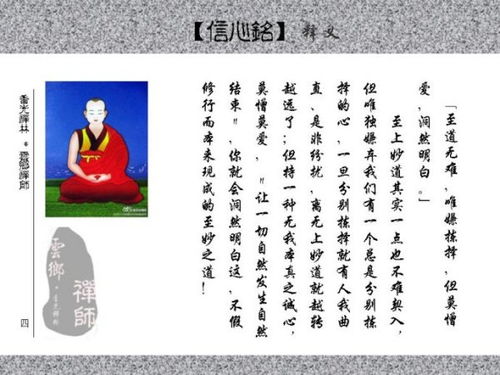 【信心銘】释义
「至道无难，唯嫌拣择，但莫憎
爱，洞然明白。」
至上妙道其实一点也不难契入，
但唯独嫌弃我们有一个总是分别拣
择的心，一旦分别拣择就有人我曲
直、是非纷扰，离无上妙道就越转
越远了；但持一种无我本真之诚心，
莫憎莫爱，〃让一切自然发生自然
结束〃，你就会洞然明白这，不假
修行而本来现成的至妙之道！
禪師
雲鄉
香光禪林 * 雲鄉禪師
四